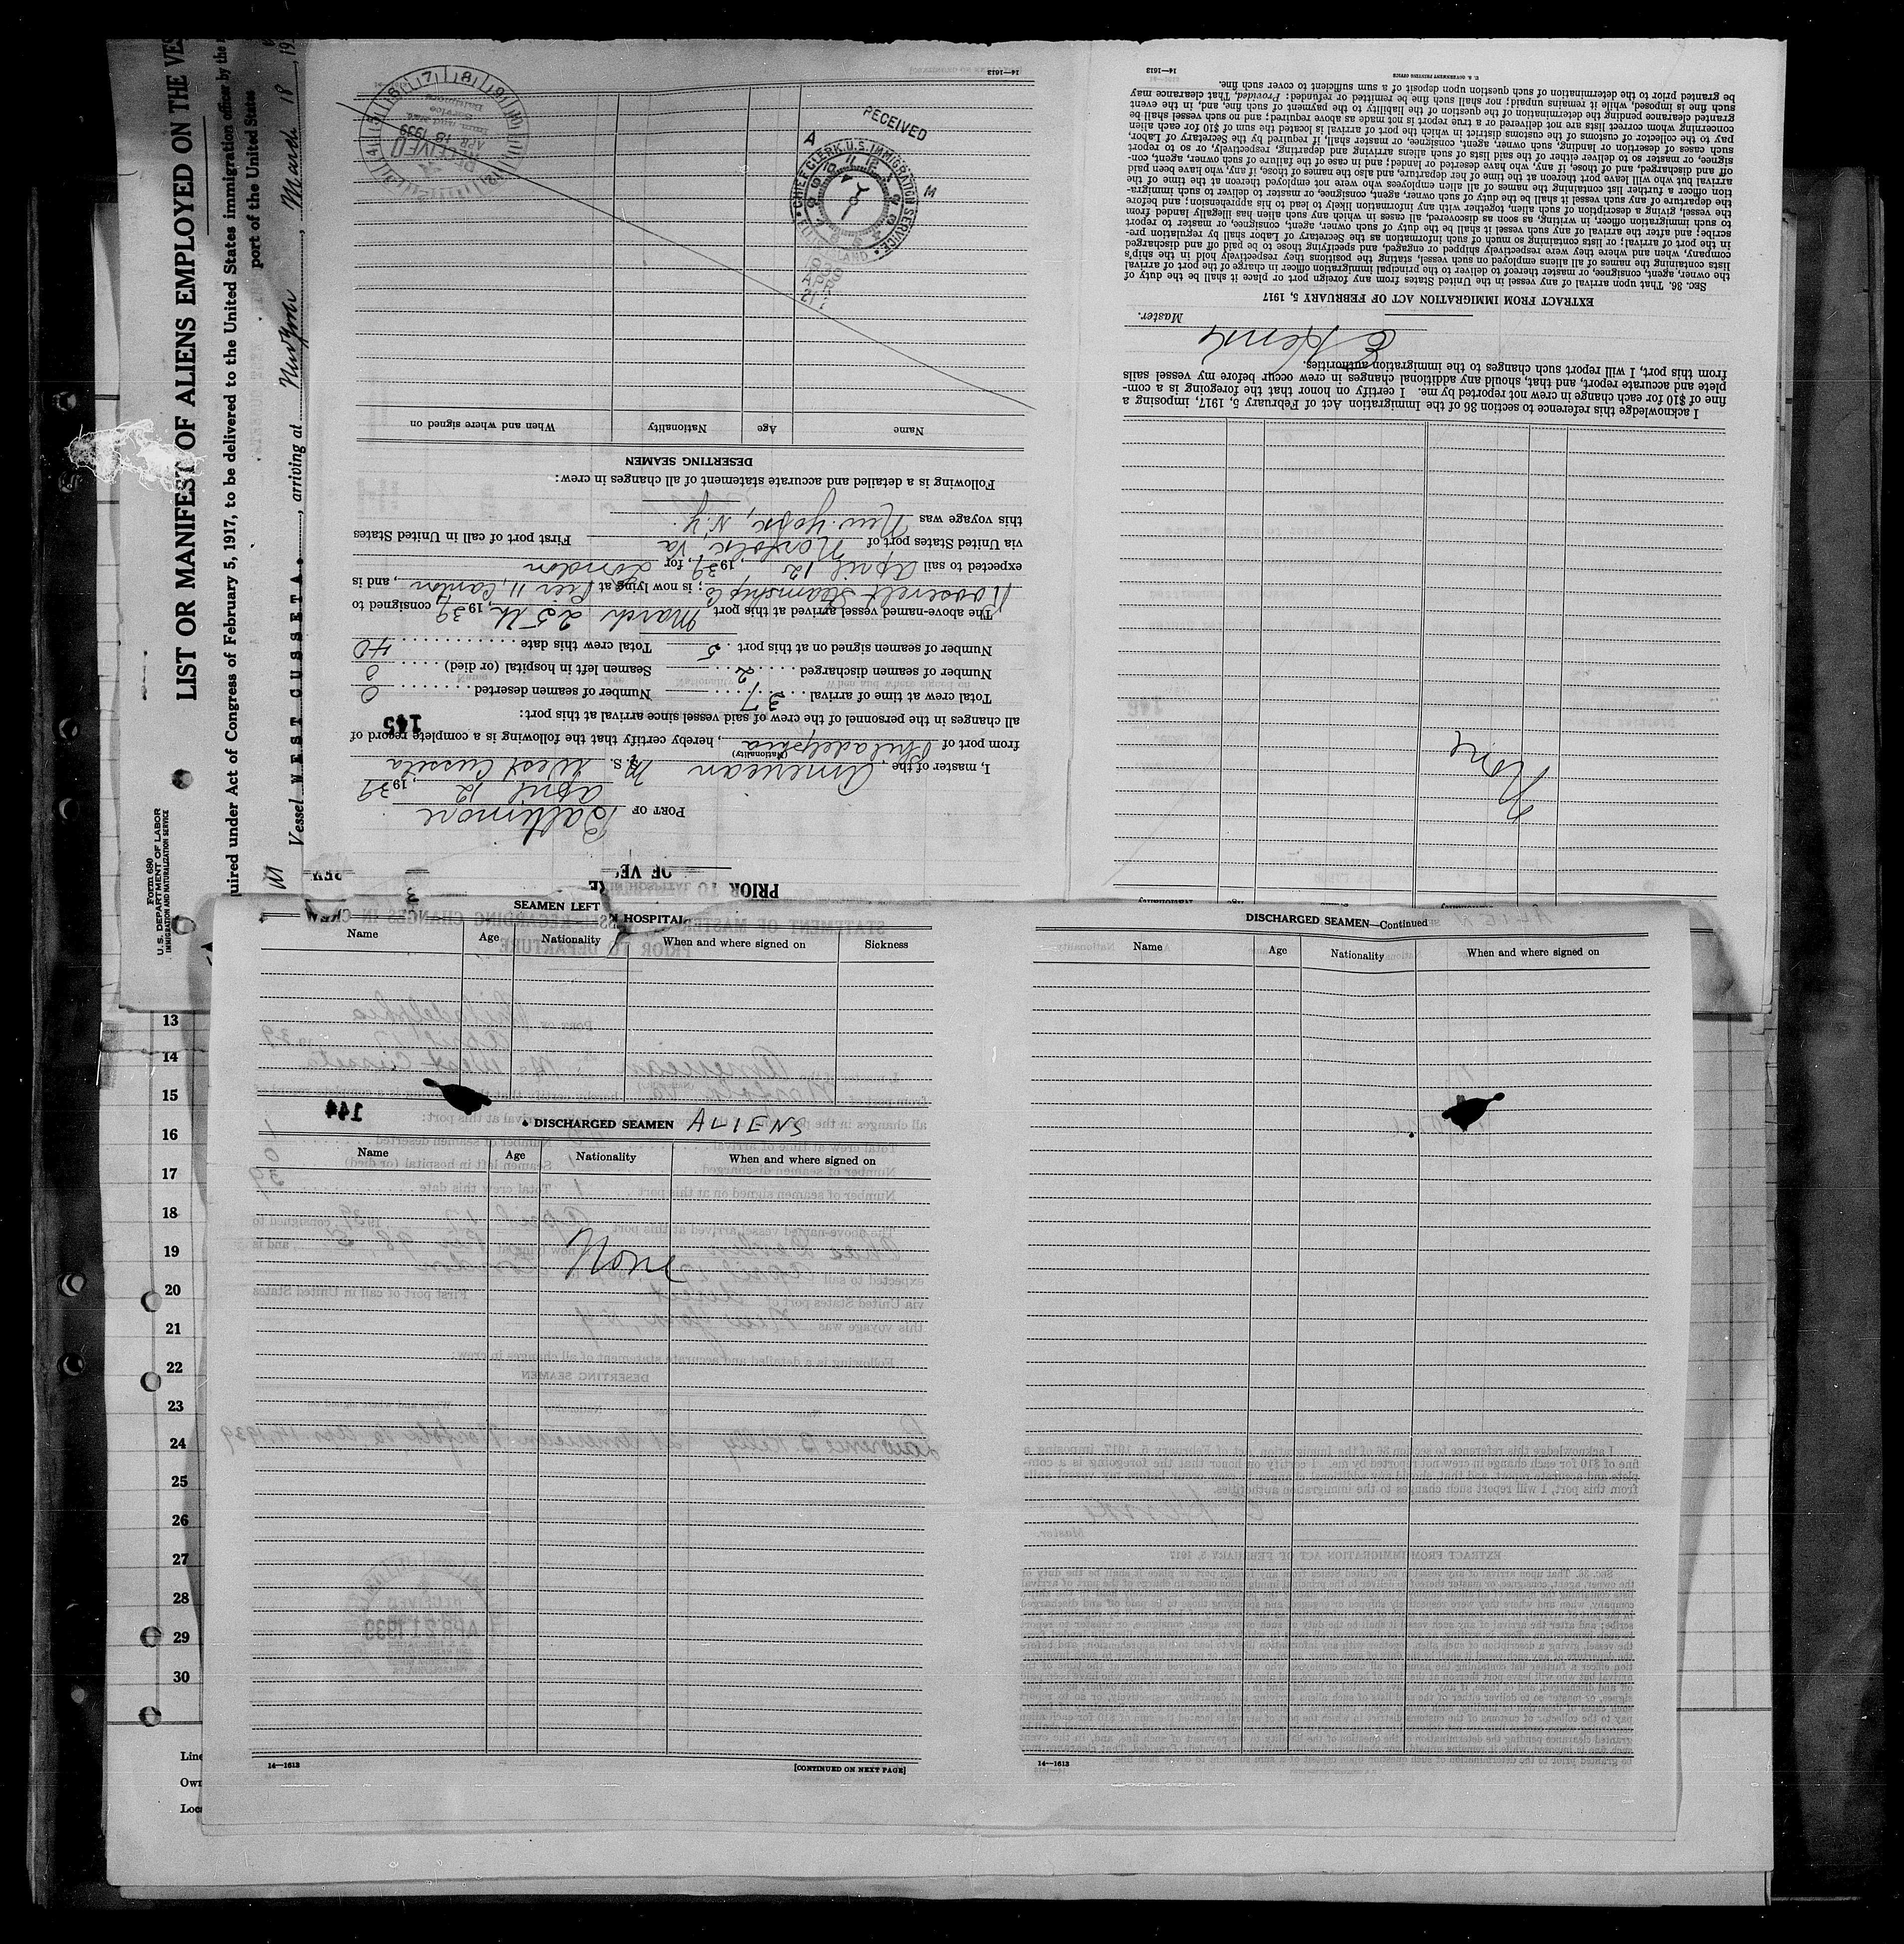 Form 680
U.S. DEPARTMENT OF LABOR
IMMIGRATION AND NATURALIZATION SERVICE
LIST OR MANIFEST OF ALIENS EMPLOYED ON THE VES
uired under Act of Congress of February 5, 1917, to be delivered to the United States immigration officer by the
port of the United States
Vessel WEST CUSSETA., arriving at New York, March 18, 19
PRIOR TO
OF VE
PORT OF Baltimore
April 12, 1939
I, master of the American M. S. West Cusseta
(Nationality)
from port of Philadelphia, hereby certify that the following is a complete record of
all changes in the personnel of the crew of said vessel since arrival at this port:
145
Total crew at time of arrival 37 Number of seamen deserted 0
Number of seamen discharged 2 Seamen left in hospital (or died) 0
Number of seamen signed on at this port 5 Total crew this date 40
The above-named vessel arrived at this port March 25th, 1939, consigned to
Roosevelt Steamship Co; is now lying at Pier 11, Canton, and is
expected to sail April 12, 1939, for London
via United States port of Norfolk, Va First port of call in United States
this voyage was New York, N.Y.
Following is a detailed and accurate statement of all changes in crew:
DESERTING SEAMEN
Name Age Nationality When and where signed on
RECEIVED
CHIEF CLERK, U.S. IMMIGRATION SERVICE
A M
RECEIVED
APR 13 1939
14—1613
None
I acknowledge this reference to section 36 of the Immigration Act of February 5, 1917, imposing a
fine of $10 for each change in crew not reported by me. I certify on honor that the foregoing is a com-
plete and accurate report, and that, should any additional changes in crew occur before my vessel sails
from this port, I will report such changes to the immigration authorities.
Master.
EXTRACT FROM IMMIGRATION ACT OF FEBRUARY 5, 1917
SEC. 36. That upon arrival of any vessel in the United States from any foreign port or place it shall be the duty of
the owner, agent, consignee, or master thereof to deliver to the principal immigration officer in charge of the port of arrival
lists containing the names of all aliens employed on such vessel, stating the positions they respectively hold in the ship's
company, when and where they were respectively shipped or engaged, and specifying those to be paid off and discharged
in the port of arrival; or lists containing so much of such information as the Secretary of Labor shall by regulation pre-
scribe; and after the arrival of any such vessel it shall be the duty of such owner, agent, consignee, or master to report
to such immigration officer, in writing, as soon as discovered, all cases in which any such alien has illegally landed from
the vessel, giving a description of such alien, together with any information likely to lead to his apprehension; and before
the departure of any such vessel it shall be the duty of such owner, agent, consignee, or master to deliver to such immigra-
tion officer a further list containing the names of all alien employees who were not employed thereon at the time of the
arrival but who will leave port thereon at the time of her departure, and also the names of those, if any, who have been paid
off and discharged, and of those, if any, who have deserted or landed; and in case of the failure of such owner, agent, con-
signee, or master so to deliver either of the said lists of such aliens arriving and departing, respectively, or so to report
such cases of desertion or landing, such owner, agent, consignee, or master, shall, if required by the Secretary of Labor,
pay to the collector of customs of the customs district in which the port of arrival is located the sum of $10 for each alien
concerning whom correct lists are not delivered or a true report is not made as above required; and no such vessel shall be
granted clearance pending the determination of the question of the liability to the payment of such fine, and, in the event
such fine is imposed, while it remains unpaid; nor shall such fine be remitted or refunded: Provided, That clearance may
be granted prior to the determination of such question upon deposit of a sum sufficient to cover such fine.
U. S. GOVERNMENT PRINTING OFFICE
14—1613
SEAMEN LEFT HOSPITAL
Name Age Nationality When and where signed on Sickness
144
DISCHARGED SEAMEN ALIENS
Name Age Nationality When and where signed on
None
14—1613
[CONTINUED ON NEXT PAGE]
DISCHARGED SEAMEN—Continued
Name Age Nationality When and where signed on
14—1613
13
14
15
16
17
18
19
20
21
22
23
24
25
26
27
28
29
30
Line